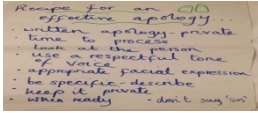 Recipe for an
effective apology...
• written apology - private
• time to process
• look at the person
• use a respectful tone
of voice
• appropriate facial expression
• be specific - describe
• keep it private
• when ready • don't say "